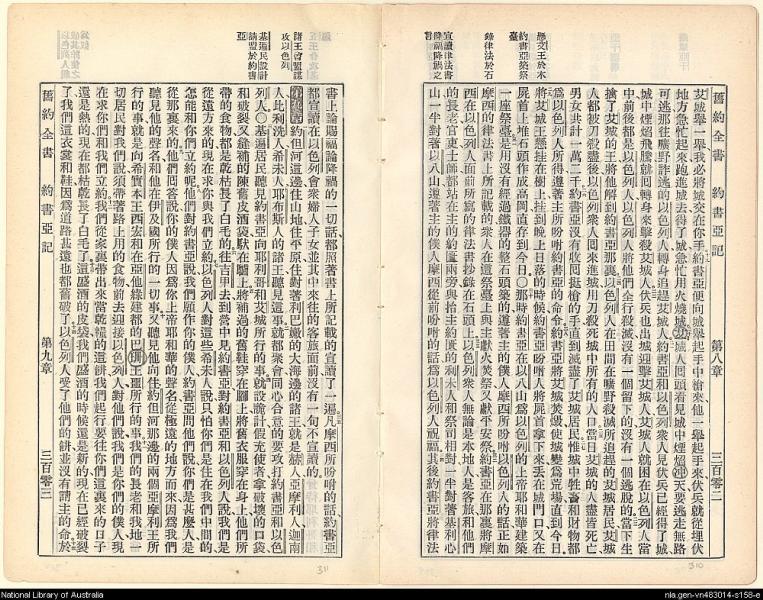 舊約全書 約書亞記 第八章 三百零二
艾城舉一舉我必將城交在你手約書亞便向城舉起手中槍來他一舉起手來伏兵就從埋伏
地方急忙起來跑進城去得了城急忙用火燒城艾城人回頭看見城中煙焰冲天要逃走無路
可逃那往曠野詐逃的以色列人轉身追趕艾城人約書亞和以色列衆人見伏兵已經得了城
城中煙焰飛騰就回轉身來擊殺艾城人伏兵也出城迎擊艾城人艾城人就困在以色列人當
中前後都是以色列人以色列人將他們全行殺滅沒有一個留下的沒有一個逃脫的當下生
擒了艾城的王將他解到約書亞那裏以色列人在田間在曠野殺滅所追趕的艾城居民艾城
人都被刀殺盡後以色列衆人回來進城用刀殺死城中所有的人口當日艾城的人盡皆死亡
男女共計一萬二千約書亞沒有收回挺槍的手直到滅盡了艾城居民惟城中牲畜和財物都
爲以色列人所得遵著主所吩咐約書亞的命令約書亞將艾城焚燬使城變爲荒場直到今日
懸艾王於木
將艾城王懸挂在樹上挂到晚上日落的時候約書亞吩咐人將屍首拿下來丢在城門口又在
約書亞築祭臺
屍首上堆石頭作成高岡直存到今日○那時約書亞在以八山爲以色列的上帝耶和華建築
一座祭臺是用沒有經過鐵器的整石頭築的遵著主的僕人摩西所吩咐以色列人的話正如
摩西的律法書上所記載的衆人在這祭臺上與主獻火焚祭又獻平安祭約書亞在那裏將摩
錄律法於石
西在以色列人面前所寫的律法書抄錄在石頭上以色列衆人無論是本地人是客旅和他們
的長老官吏士師都站在主的約匱兩旁與抬主約匱的利未人和祭司相對一半對著基利心
宣讀律法書降福降禍之言
山一半對著以八山遵著主的僕人摩西從前吩咐的話爲以色列人祝福其後約書亞將律法
310
書上論賜福論降禍的一切話都照著書上所記載的宣讀了一遍凡摩西所吩咐的話約書亞
都宣讀在以色列會衆婦人子女並其中來往的客旅面前沒有一句不宣讀的
諸王會盟謀攻以色列
第九章 約但河這邊住山地住平原住對著利巴嫩的大海邊的諸王就是赫人亞摩利人迦南
人比利洗人希未人耶布斯人的諸王聽見這事就都聚會同心合意的要攻打約書亞和以色
基遍民設計請盟於約書亞
列人○基遍居民聽見約書亞向耶利哥和艾城所行的事就設詭計假充使者拿破壞的口袋
和破裂又縫補的陳舊皮酒袋馱在驢上將補過的舊鞋穿在腳上將舊衣服穿在身上他們所
帶的食物都是乾枯長了白毛的往吉甲去到營中見約書亞對約書亞和以色列人說我們是
從遠方來的現在求你與我們立約以色列人對這些希未人說只怕你們是住在我們中間的
怎能和你們立約呢他們對約書亞說我們願作你的僕人約書亞問他們說你們是甚麼人是
從那裏來的他們回答說你的僕人因爲你上帝耶和華的聲名從極遠的地方而來因爲我們
聽見他的聲名和他在伊及國所行的一切事又聽見他向住約但河那邊的兩個亞摩利王所
行的事就是向希實本王西宏和在亞他綠建都的巴珊王噩所行的事我們的長老和我地一
切居民對我們說須帶著路上用的食物前去迎接以色列人對他們說我們是你們的僕人現
在求你們和我們立約我們從家裏帶出來當乾糧的這餅我們起行要往你們這裏來的日子
還是熱的現在都枯乾長了白毛了這盛酒的皮袋我們盛酒的時候還是新的現在已經破裂
了我們這衣裳和鞋因爲道路甚遠也都舊破了以色列人受了他們的餅並沒有請主的命於
舊約全書 約書亞記 第九章 三百零三
311
National Library of Australia
nla.gen-vn483014-s158-e